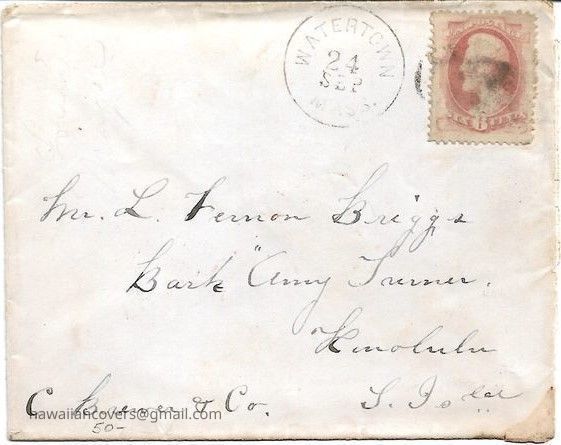 WATERTOWN
24
SEP
MASS.
6
Mr. L. Vernon Briggs
Bark "Amy Turner.
Honolulu
C Brewer & Co. S. Islds
hawaiiancovers@gmail.com
50-